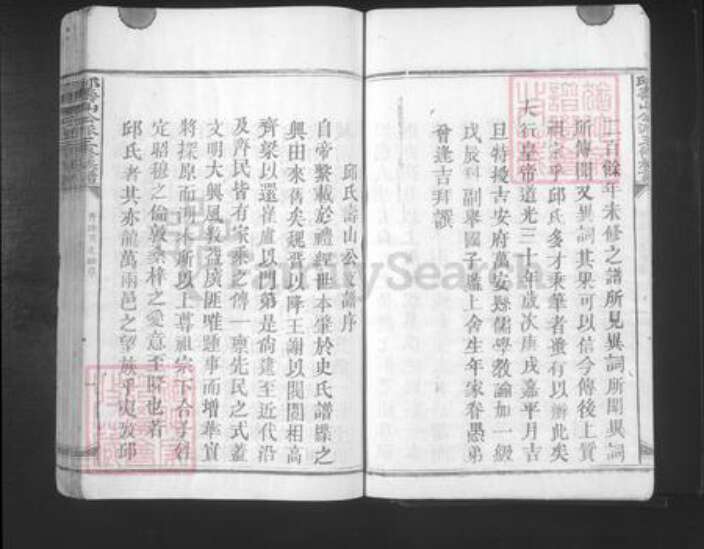 二百餘年未修之譜所見異詞所聞異詞
所傳聞又異詞其果可以信今傳後上質
祖宗乎邱氏多才秉筆者重有以辦此矣
大行皇帝道光三十年歲次庚戌嘉平月吉
旦特授吉安府萬安縣儒學教諭加一級
戊辰科副舉國子監上舍生年家眷愚弟
曾逢吉拜譔
邱氏壽山公支譜序
自帝繫載於禮經世本肇於史氏譜牒之
興由來舊矣魏晋以降王謝以閥閱相高
齊梁以還崔盧以門第是尚逮至近代沿
及齊民皆有家乘之傳一禀先民之式蓋
文明大興風教益廣匪唯踵事而增華實
將探原而明本所以上尊祖宗下合子姓
定昭穆之倫敦桑梓之愛意至厚也若
邱氏者其亦龍萬兩邑之望族乎爰攷邱
邱壽山公派
FamilySearch